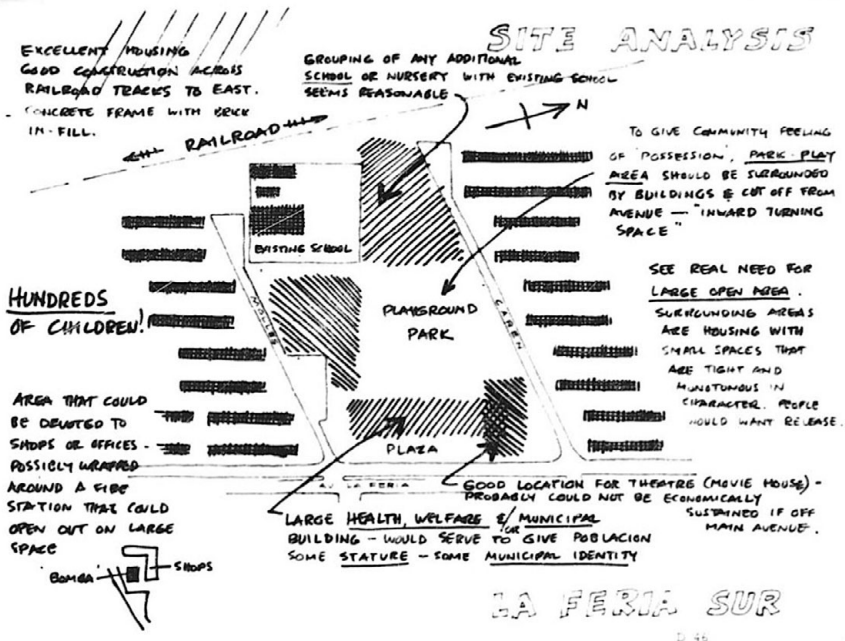 SITE ANALYSIS
EXCELLENT HOUSING
GOOD CONSTRUCTION ACROSS
RAILROAD TRACKS TO EAST.
CONCRETE FRAME WITH BRICK
IN-FILL.
GROUPING OF ANY ADDITIONAL
SCHOOL OR NURSERY WITH EXISTING SCHOOL
SEEMS REASONABLE
N
RAILROAD
TO GIVE COMMUNITY FEELING
OF "POSSESSION", PARK-PLAY
AREA SHOULD BE SURROUNDED
BY BUILDINGS & CUT OFF FROM
AVENUE — "INWARD TURNING
SPACE"
EXISTING SCHOOL
HUNDREDS
OF CHILDREN!
MOLLES
PLAYGROUND
PARK
CAREN
SEE REAL NEED FOR
LARGE OPEN AREA.
SURROUNDING AREAS
ARE HOUSING WITH
SMALL SPACES THAT
ARE TIGHT AND
MONOTONOUS IN
CHARACTER. PEOPLE
WOULD WANT RELEASE.
AREA THAT COULD
BE DEVOTED TO
SHOPS OR OFFICES -
POSSIBLY WRAPPED
AROUND A FIRE
STATION THAT COULD
OPEN OUT ON LARGE
SPACE
BOMBA
SHOPS
PLAZA
AV. LA FERIA
GOOD LOCATION FOR THEATRE (MOVIE HOUSE) -
PROBABLY COULD NOT BE ECONOMICALLY
SUSTAINED IF OFF
MAIN AVENUE.
LARGE HEALTH, WELFARE &/OR MUNICIPAL
BUILDING - WOULD SERVE TO GIVE POBLACION
SOME STATURE - SOME MUNICIPAL IDENTITY
LA FERIA SUR
D 46